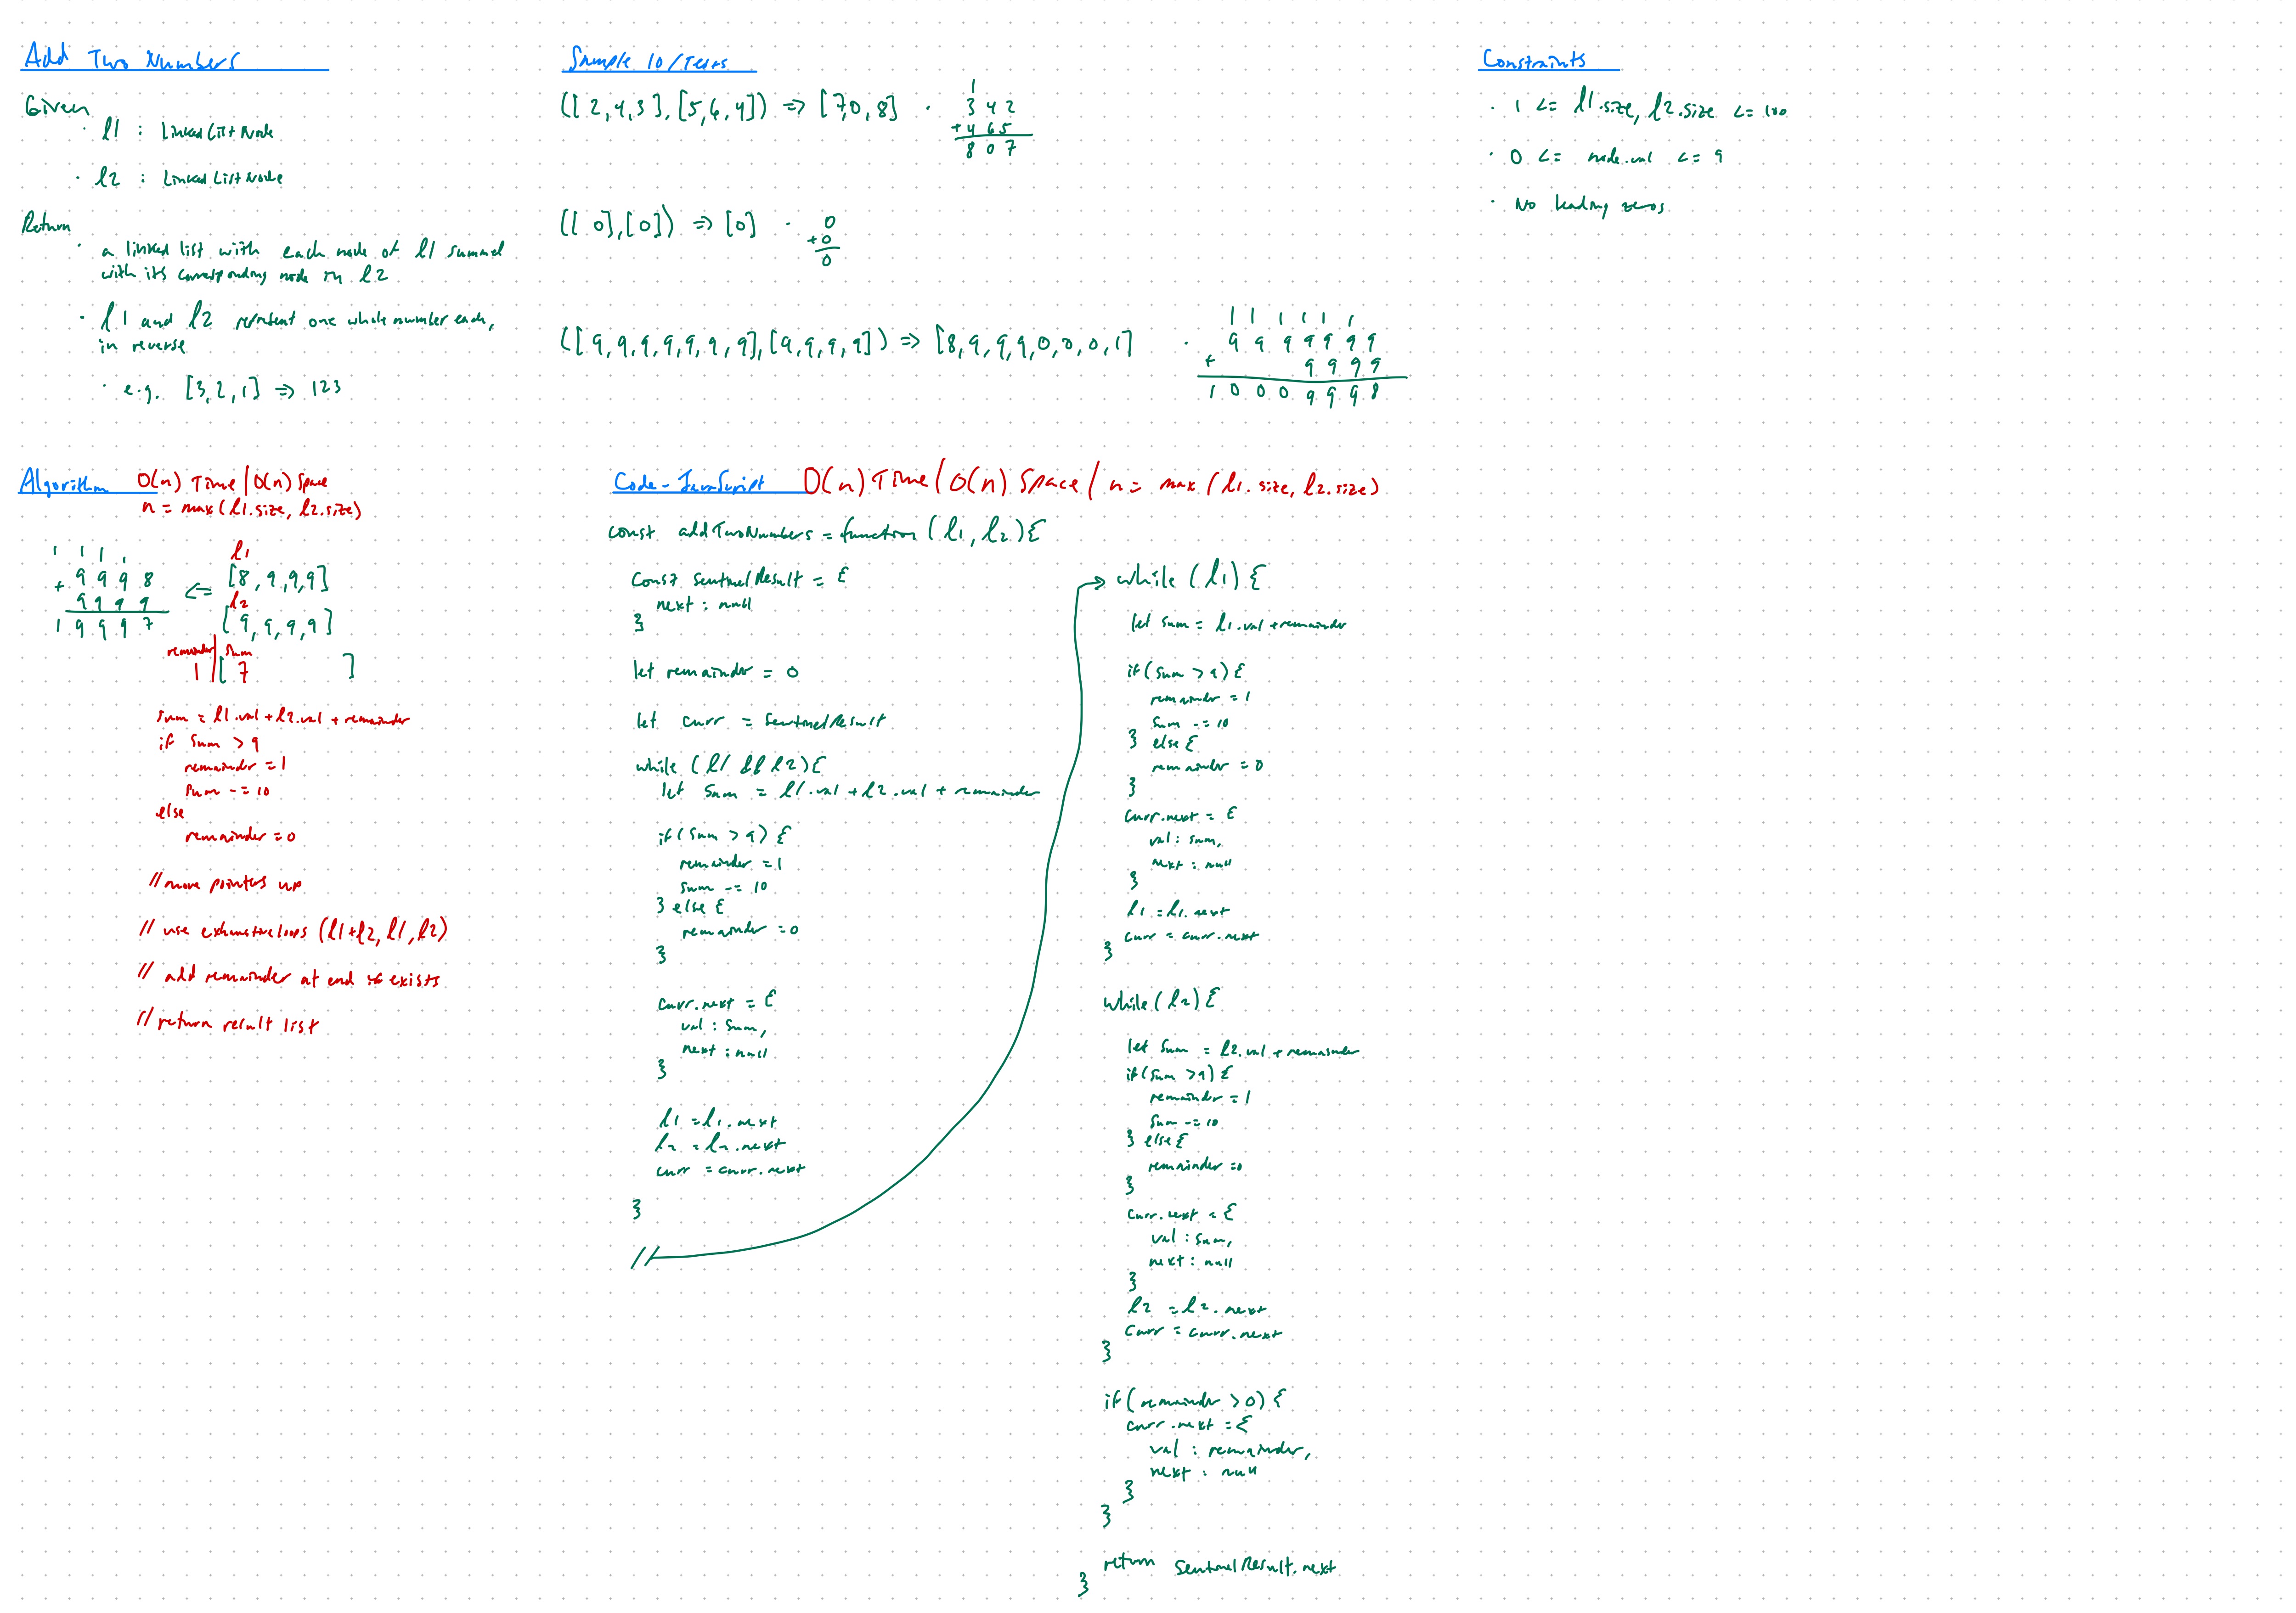 Add Two Numbers
Given
· l1 : Linked List Node
· l2 : Linked List Node
Return
· a linked list with each node of l1 summed
with its corresponding node in l2
· l1 and l2 represent one whole number each,
in reverse
· e.g. [3,2,1] => 123
Sample IO/Tests
([2,4,3],[5,6,4]) => [7,0,8] ·
1
342
+465
807
([0],[0]) => [0] ·
0
+0
0
([9,9,9,9,9,9,9],[9,9,9,9]) => [8,9,9,9,0,0,0,1] ·
1 1 1 1 1 1
9 9 9 9 9 9 9
+ 9 9 9 9
1 0 0 0 9 9 9 8
Constraints
· 1 <= l1.size, l2.size <= 100
· 0 <= node.val <= 9
· No leading zeros
Algorithm O(n) Time / O(n) Space
n = max(l1.size, l2.size)
1 1 1 1
+ 9 9 9 8
9 9 9 9
1 9 9 9 7
<=
l1
[8,9,9,9]
l2
[9,9,9,9]
remainder | sum
1 | [ 7 ]
sum = l1.val + l2.val + remainder
if sum > 9
remainder = 1
sum -= 10
else
remainder = 0
// move pointers up
// use exhaustive loops (l1+l2, l1, l2)
// add remainder at end if exists
// return result list
Code - JavaScript O(n) Time / O(n) Space / n = max(l1.size, l2.size)
const addTwoNumbers = function(l1, l2){
const sentinelResult = {
next : null
}
let remainder = 0
let curr = sentinelResult
while (l1 && l2){
let sum = l1.val + l2.val + remainder
if (sum > 9) {
remainder = 1
sum -= 10
} else {
remainder = 0
}
curr.next = {
val : sum,
next : null
}
l1 = l1.next
l2 = l2.next
curr = curr.next
}
//
while (l1) {
let sum = l1.val + remainder
if (sum > 9) {
remainder = 1
sum -= 10
} else {
remainder = 0
}
curr.next = {
val : sum,
next : null
}
l1 = l1.next
curr = curr.next
}
while (l2) {
let sum = l2.val + remainder
if (sum > 9) {
remainder = 1
sum -= 10
} else {
remainder = 0
}
curr.next = {
val : sum,
next : null
}
l2 = l2.next
curr = curr.next
}
if (remainder > 0) {
curr.next = {
val : remainder,
next : null
}
}
return sentinelResult.next
}